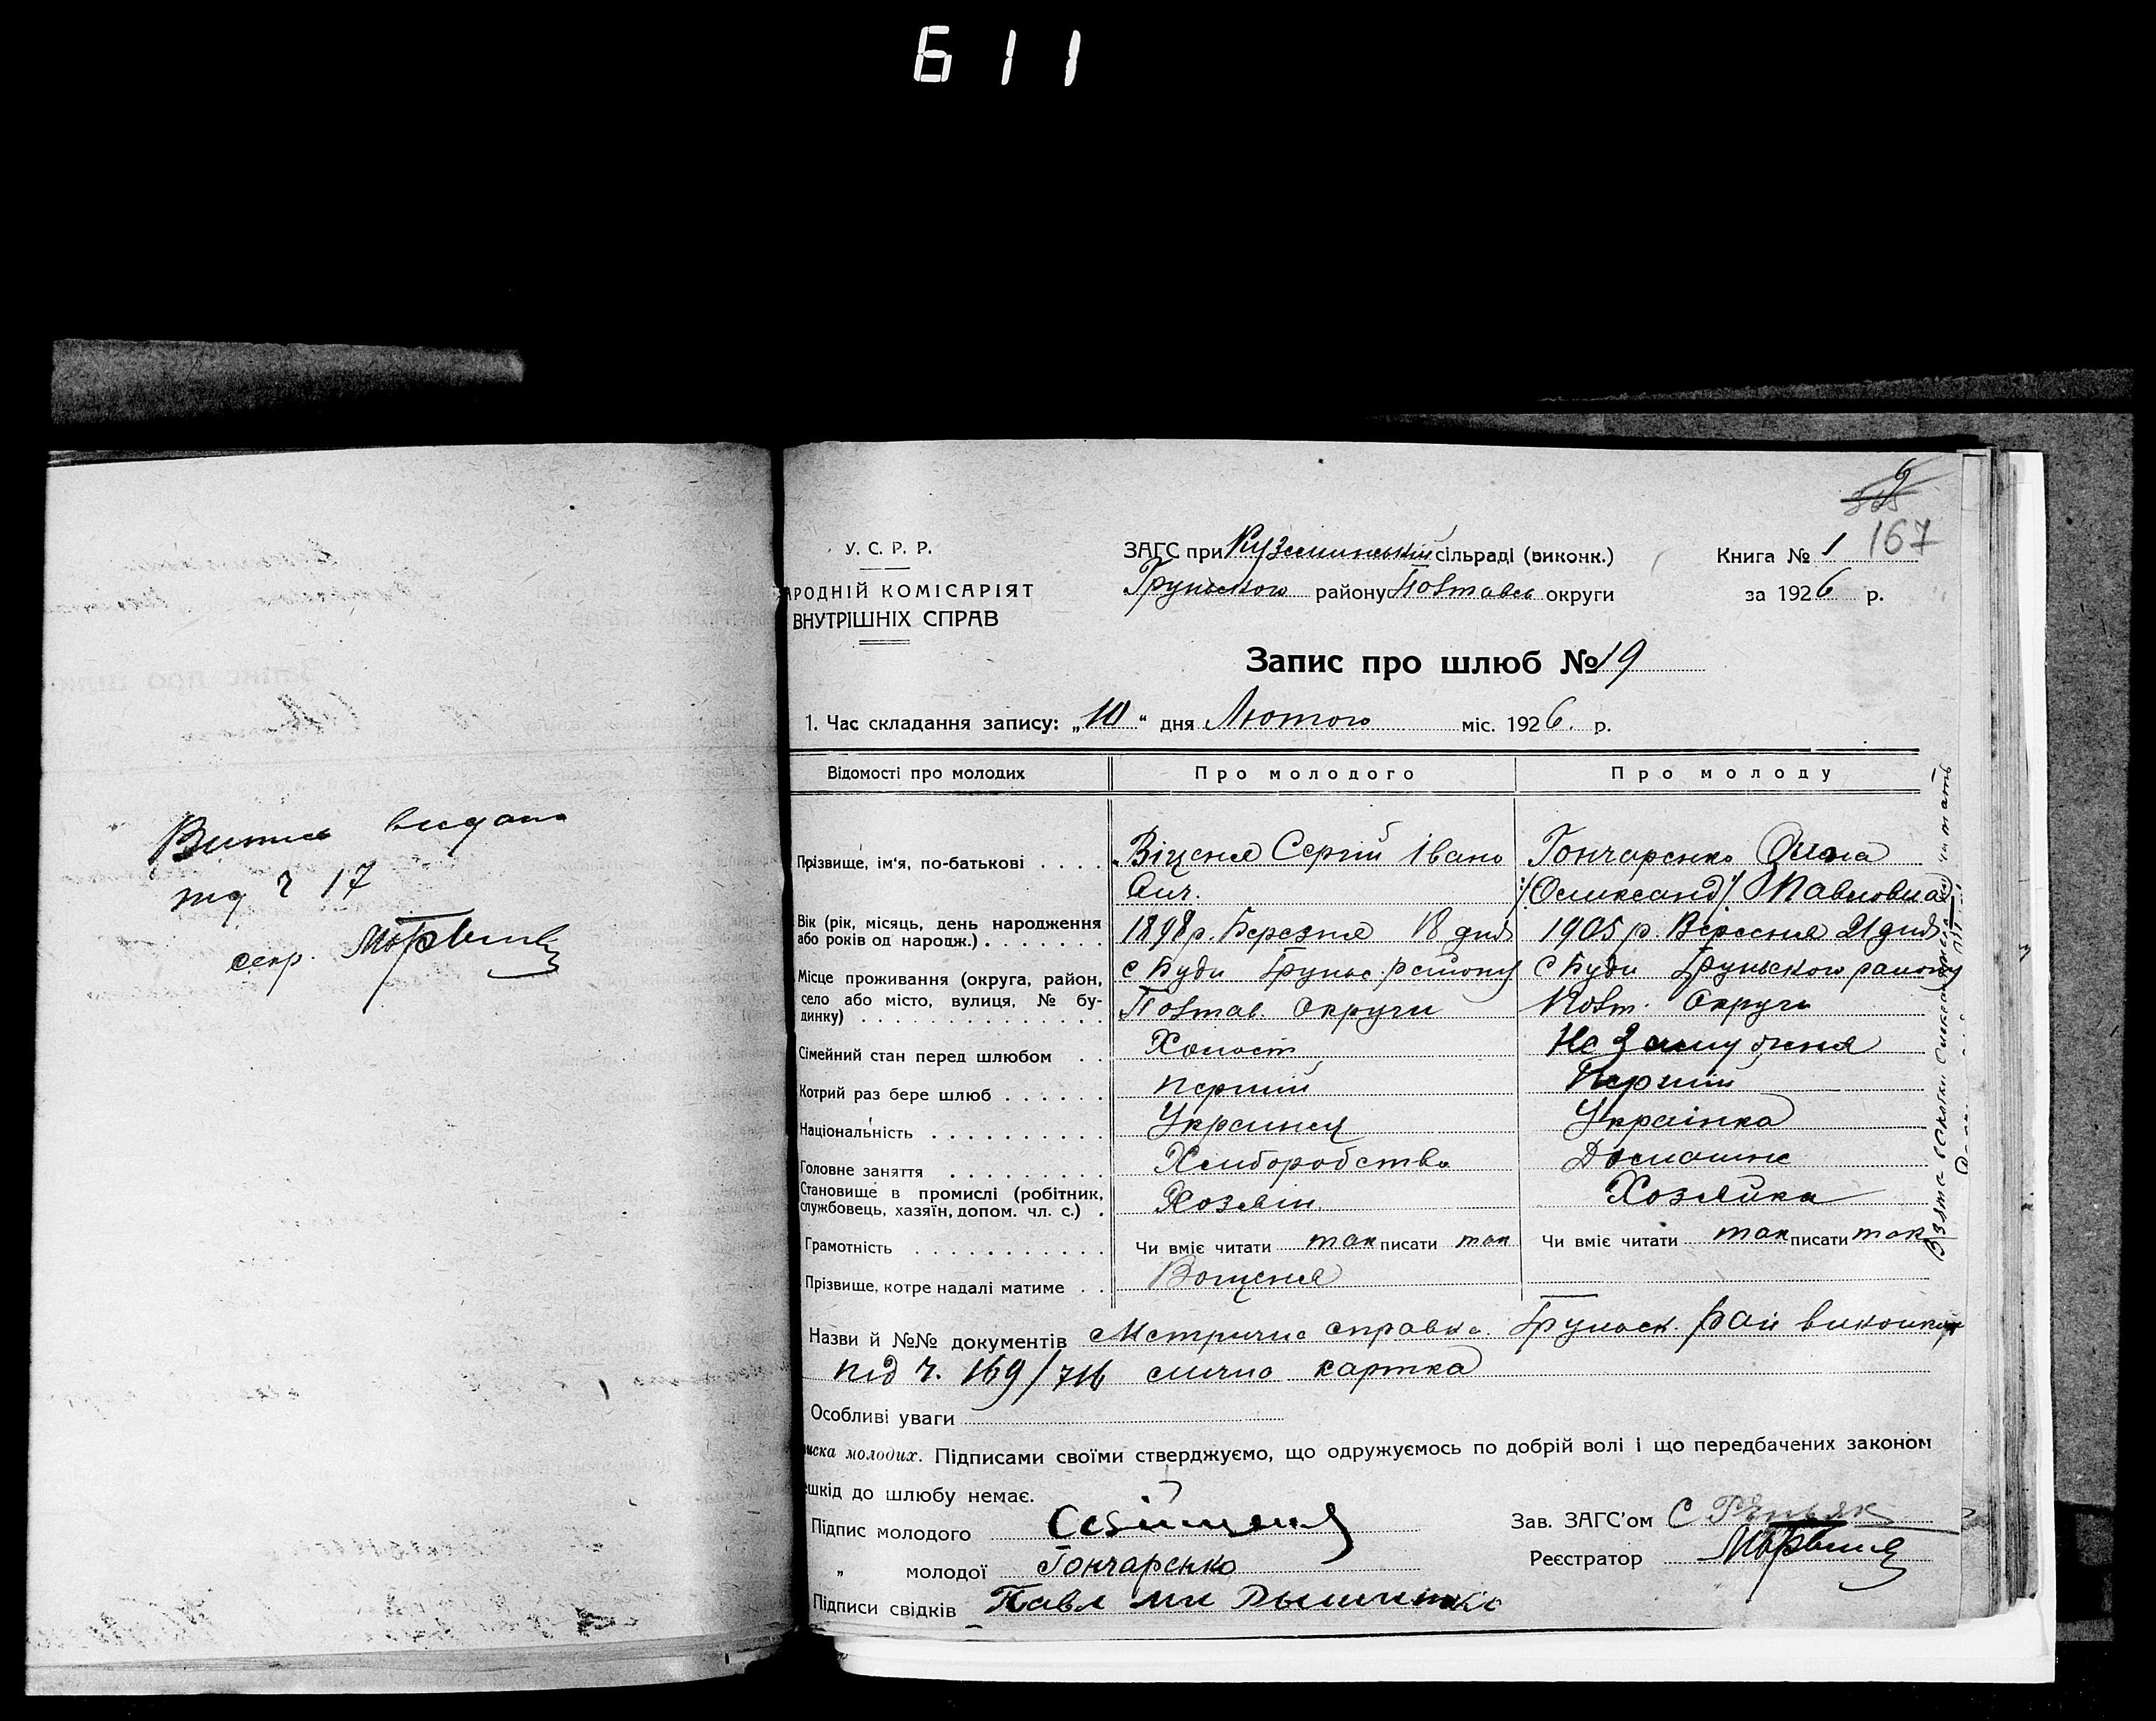 611
Випис видано
під ч 17
секр.
167
У. С. Р. Р.
АРОДНІЙ КОМІСАРІЯТ
ВНУТРІШНІХ СПРАВ
ЗАГС при Куземинській сільраді (виконк.)
Груньского району Полтавсь округи
Книга № 1
за 1926 р.
Запис про шлюб № 19
1. Час складання запису: „10“ дня Лютого міс. 1926. р.
Відомості про молодих Про молодого Про молоду
Прізвище, ім'я, по-батькові . . . . Віценя Сергій Івано Гончаренко
вич. /Олександ/ Павловна
Вік (рік, місяць, день народження
або років од народж.) . . . . . . . 1898 р. Березня 18 дня 1905 р. Вересня 21 дня
Місце проживання (округа, район, с Буди Груньс. району с Буди Груньского району
село або місто, вулиця, № бу-
динку) . . . . . . . . . . . . . . Полтав. Округи Полт. Округи
Сімейний стан перед шлюбом . . Холост Не Замужня
Котрий раз бере шлюб . . . . . . перший Перший
Національність . . . . . . . . . . Украинец Українка
Головне заняття . . . . . . . . . Хлиборобство Домашне
Становище в промислі (робітник,
службовець, хазяїн, допом. чл. с.) . Хозяін. Хозяйка
Грамотність . . . . . . . . . . . Чи вміє читати так писати так Чи вміє читати так писати так
Прізвище, котре надалі матиме . .
Назви й №№ документів Метрична справка. Груньск. Рай виконком
під ч. 169/716 лична картка
Особливі уваги
иска молодих. Підписами своїми стверджуємо, що одружуємось по добрій волі і що передбачених законом
ешкід до шлюбу немає.
Підпис молодого
„ молодої Гончаренко
Підписи свідків Павл
Зав. ЗАГС'ом
Реєстратор